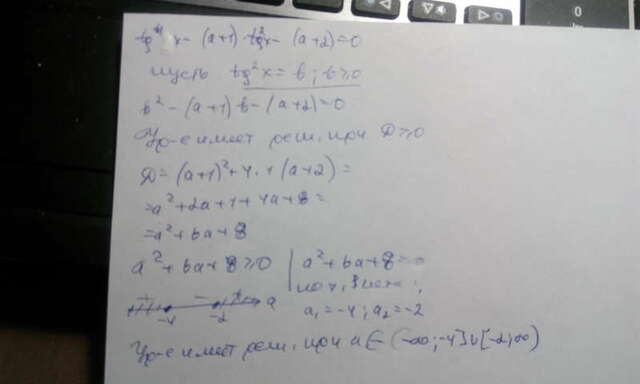 tg⁴x - (a+1) tg²x - (a+2) = 0
пусть tg²x = b; b≥0
b² - (a+1) b - (a+2) = 0
Ур-е имеет реш. при D≥0
D = (a+1)² + 4·1(a+2) =
= a² + 2a + 1 + 4a + 8 =
= a² + 6a + 8
a² + 6a + 8 ≥ 0 | a² + 6a + 8 = 0
+ - + a
-4 -2
a₁ = -4; a₂ = -2
Ур-е имеет реш. при a ∈ (-∞; -4] ∪ [-2; ∞)